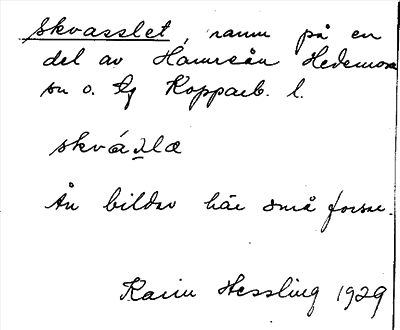 skvasslet, namn på en
del av Hamrsån Hedemora
sn o. tg Kopparb. l.
skváꝺlæ
Ån bildar här små forsar.
Karin Hessling 1929